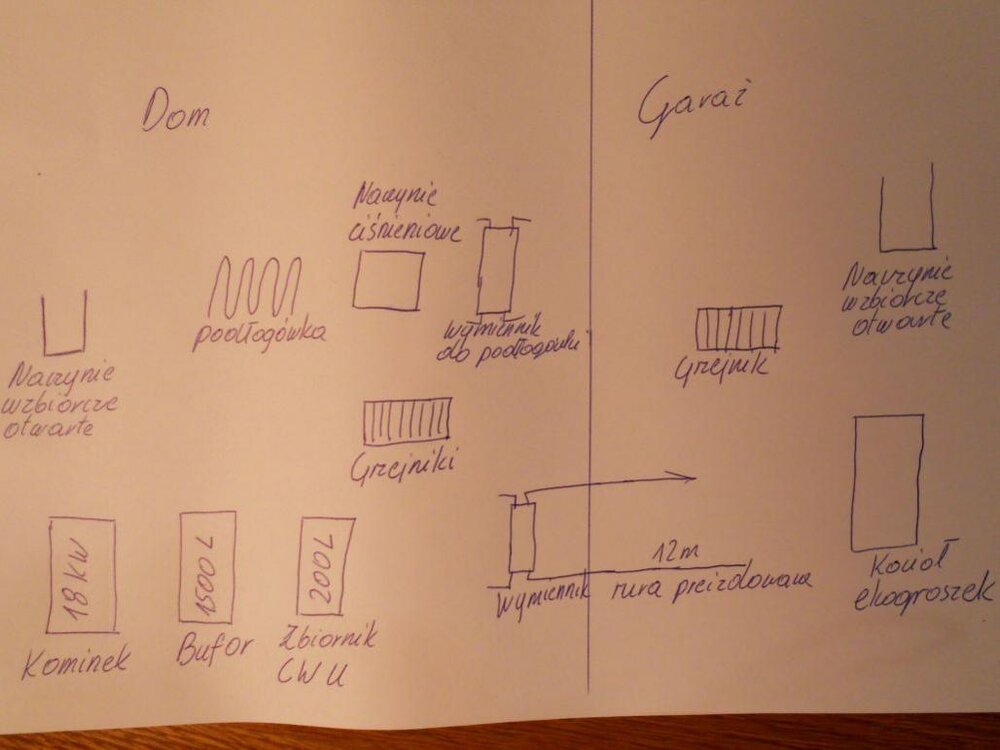 Dom
Garaż
Naczynie
ciśnieniowe
podłogówka
wymiennik
do podłogówki
Naczynie
wzbiorcze
otwarte
Grzejniki
Naczynie
wzbiorcze
otwarte
Grzejnik
18 KW
Kominek
1500 L
Bufor
200 L
Zbiornik
CWU
Wymiennik
12m
rura preizolowana
Kocioł
ekogroszek